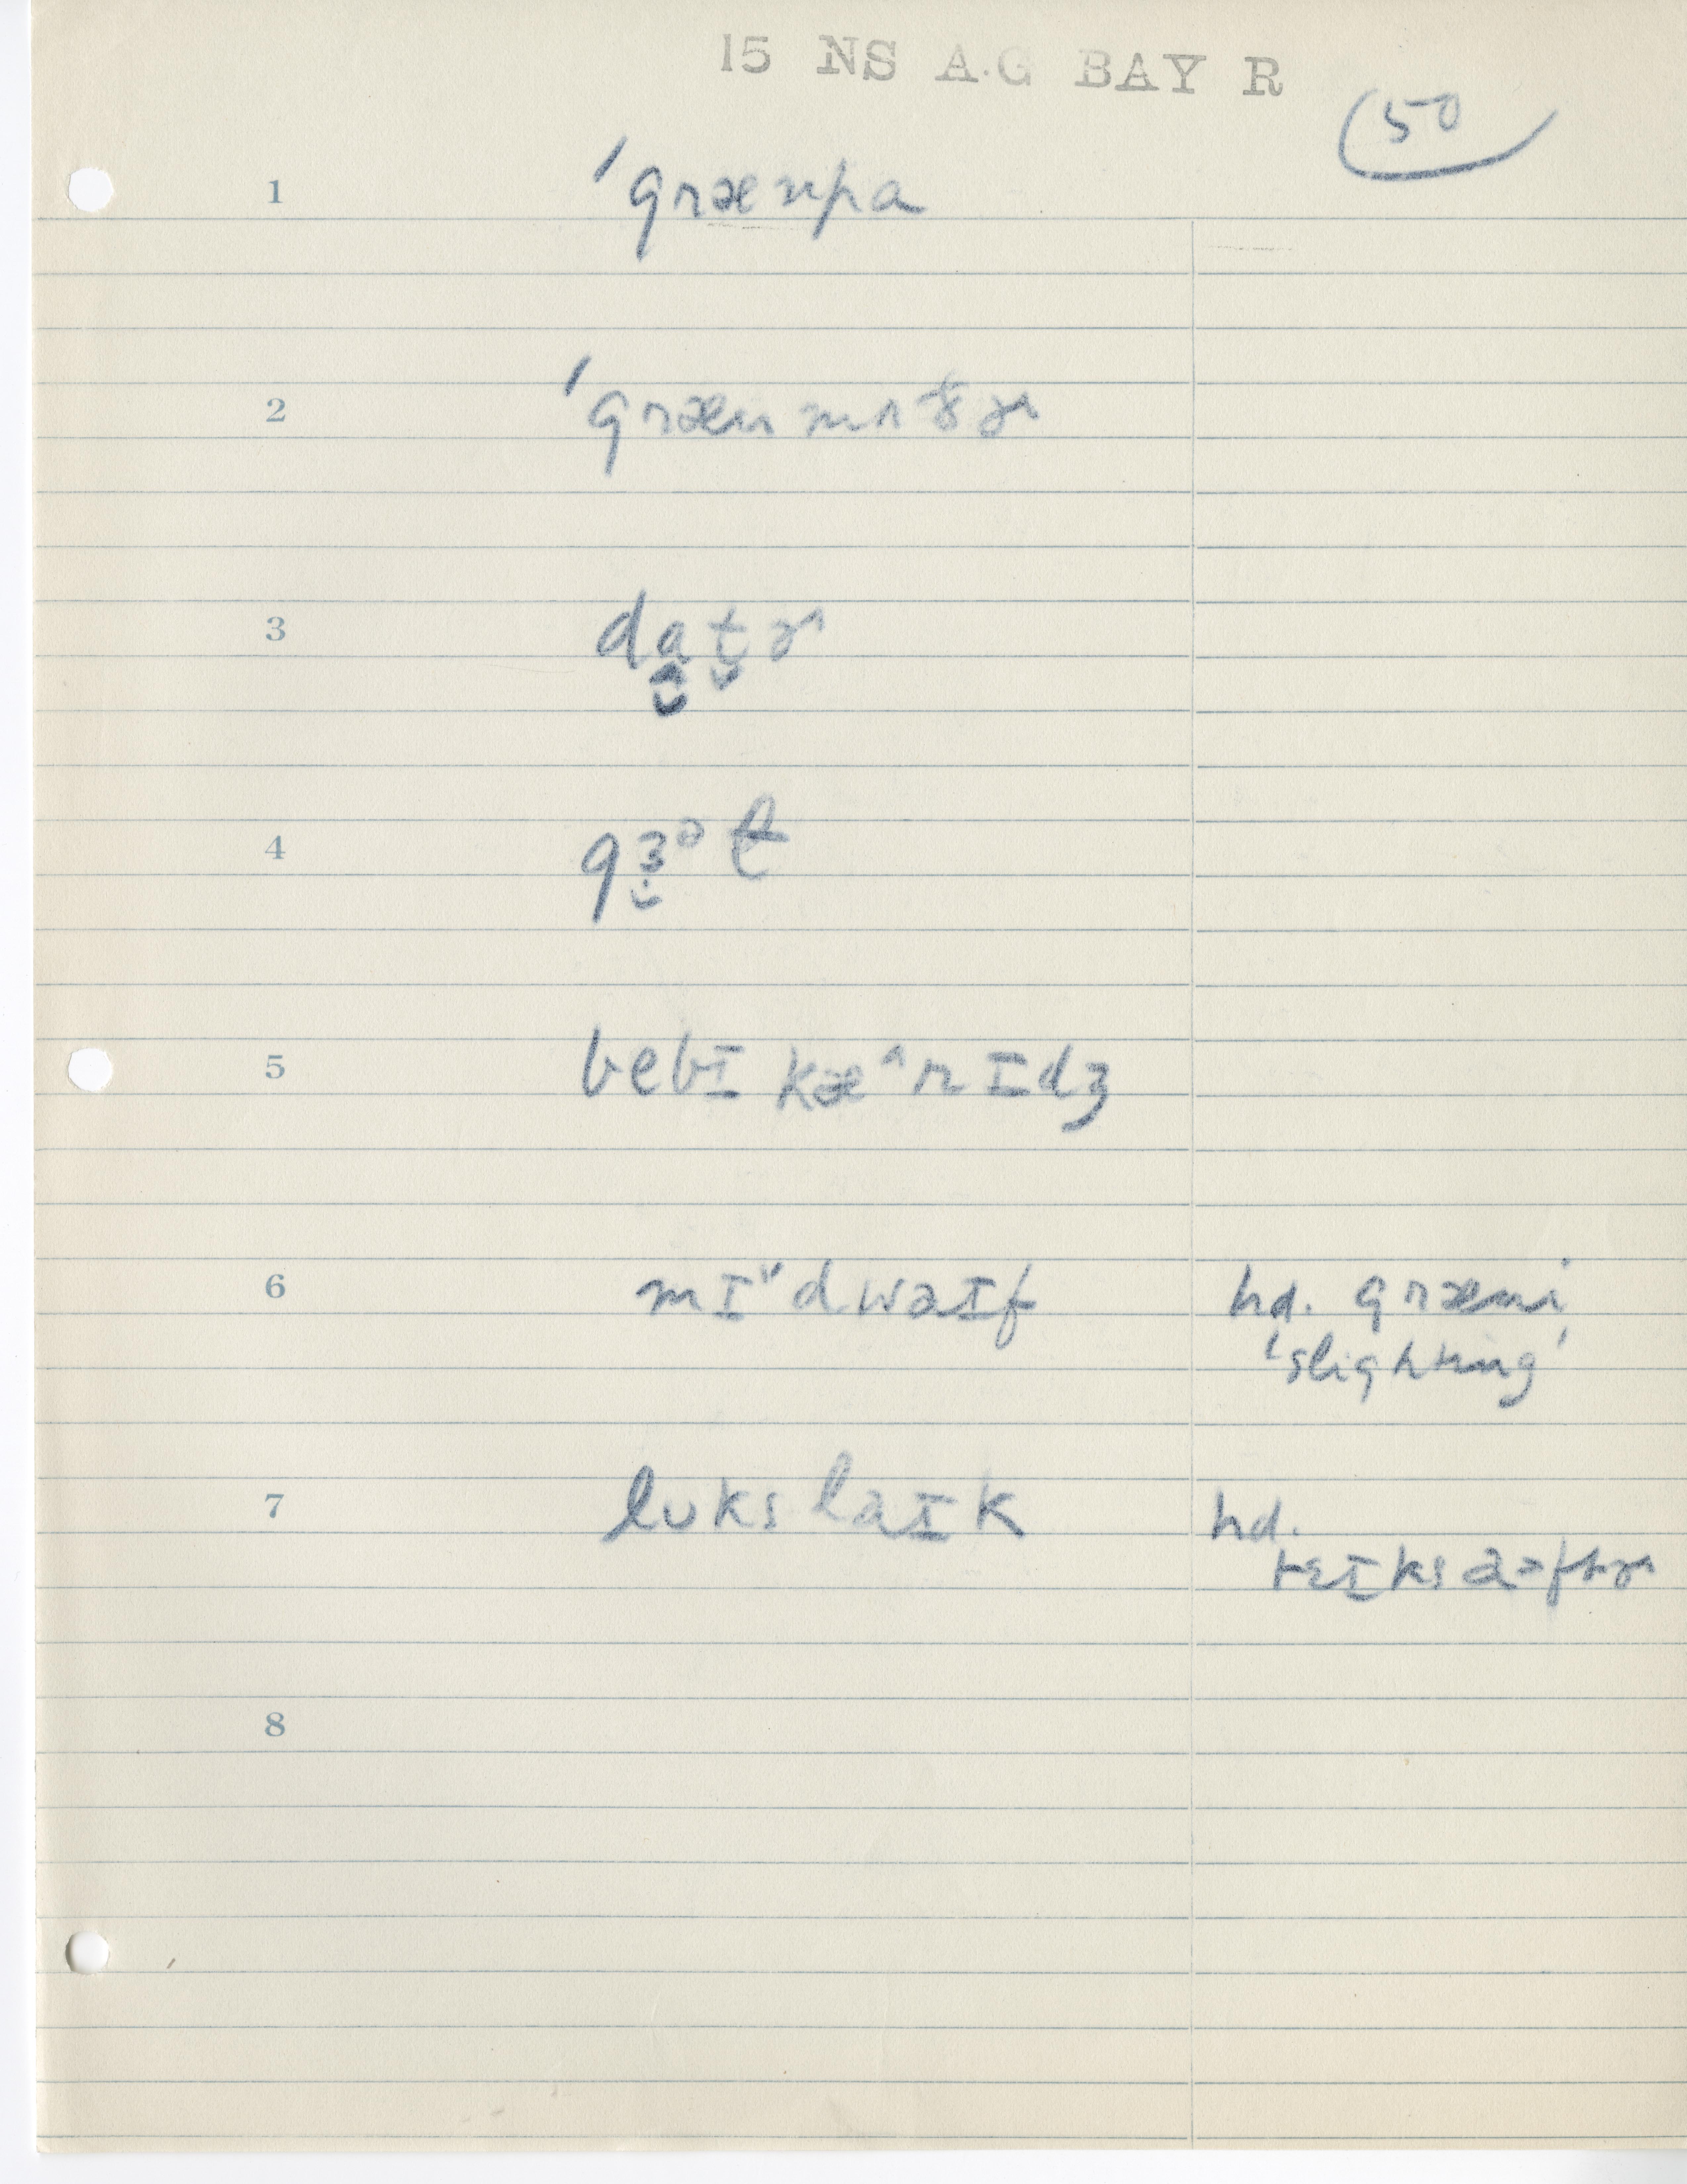 15 NS A·G BAY R
50
1 ˈgrænpa
2 ˈgrænmʌðɚ
3 da̬t̬ɚ
4 gɜ̬ᵊɫ
5 bebɪ kæ^rɪdʒ
6 mɪˇdwaɪf hd. græni
'slighting'
7 lʊks laɪk hd.
tɛɪks
8